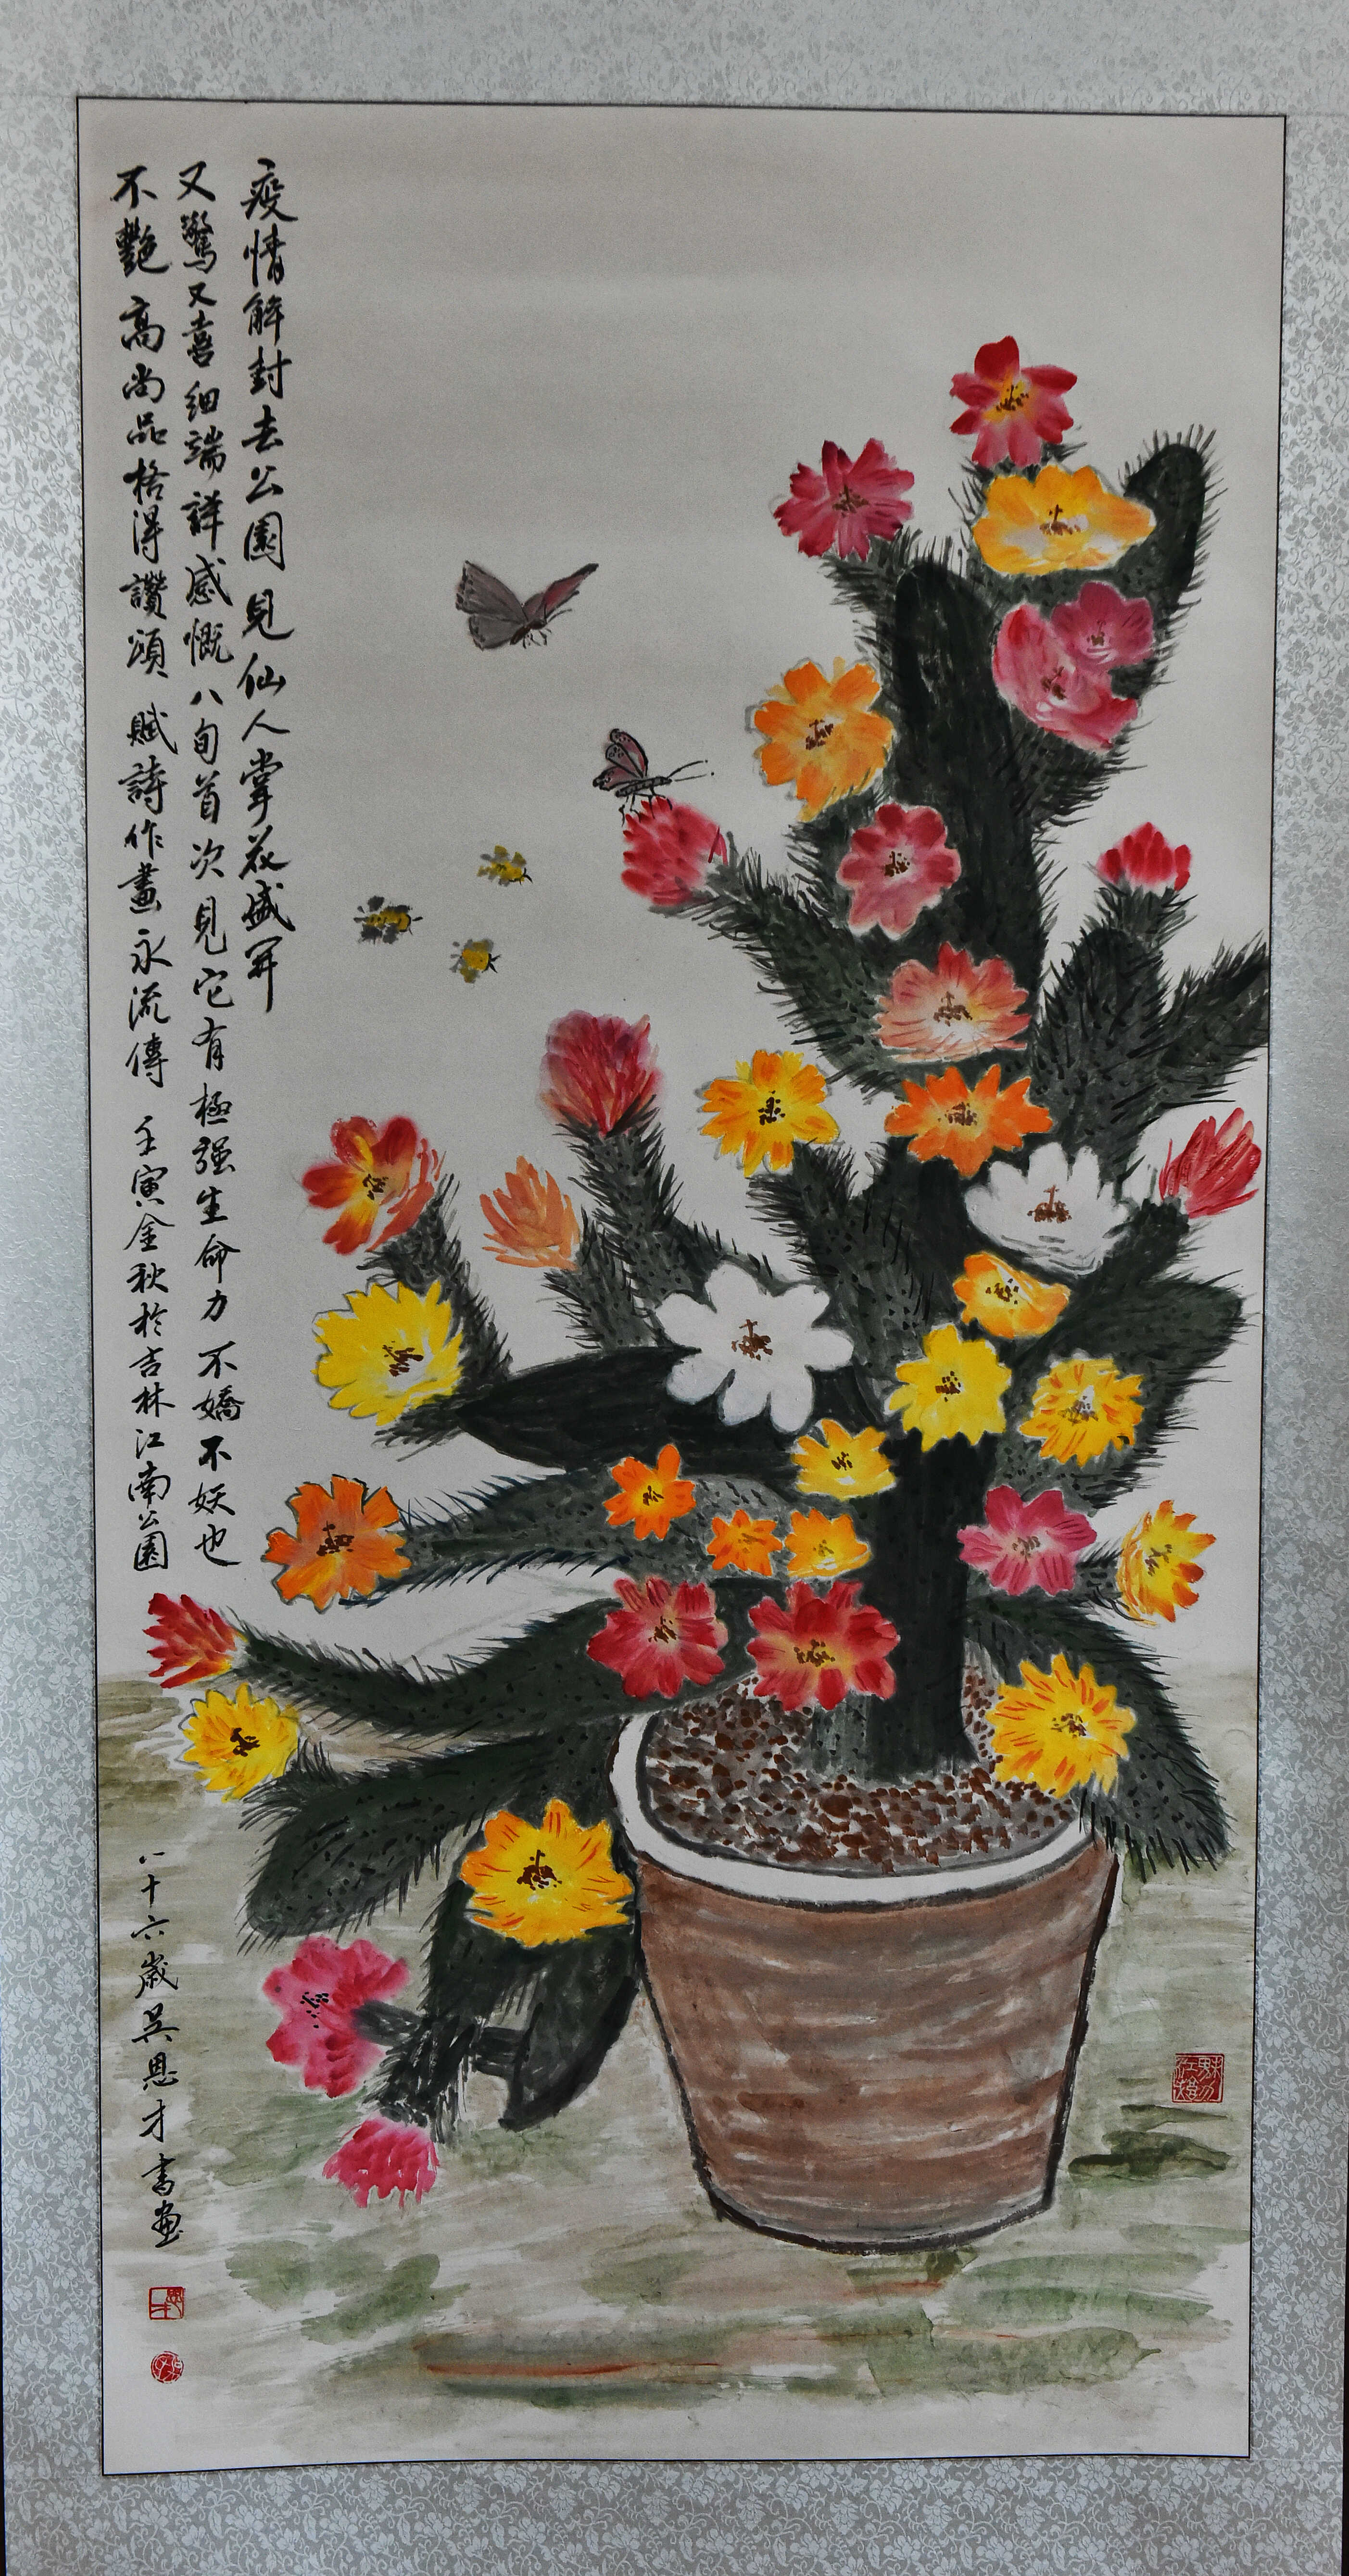 疫情解封去公園見仙人掌花盛開
又驚又喜细端詳感慨八旬首次見它有極强生命力不嬌不妖也
不艷高尚品格得讚頌賦詩作畫永流傳 壬寅金秋於吉林江南公園
八十六歲吴恩才書画